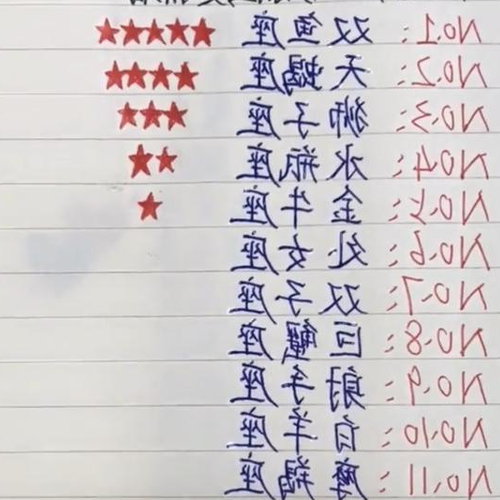 No.1: 双鱼座 ★★★★★
No.2: 天蝎座 ★★★★
No.3: 狮子座 ★★★
No.4: 水瓶座 ★★
No.5: 金牛座 ★
No.6: 处女座
No.7: 双子座
No.8: 巨蟹座
No.9: 射手座
No.10: 白羊座
No.11: 摩羯座